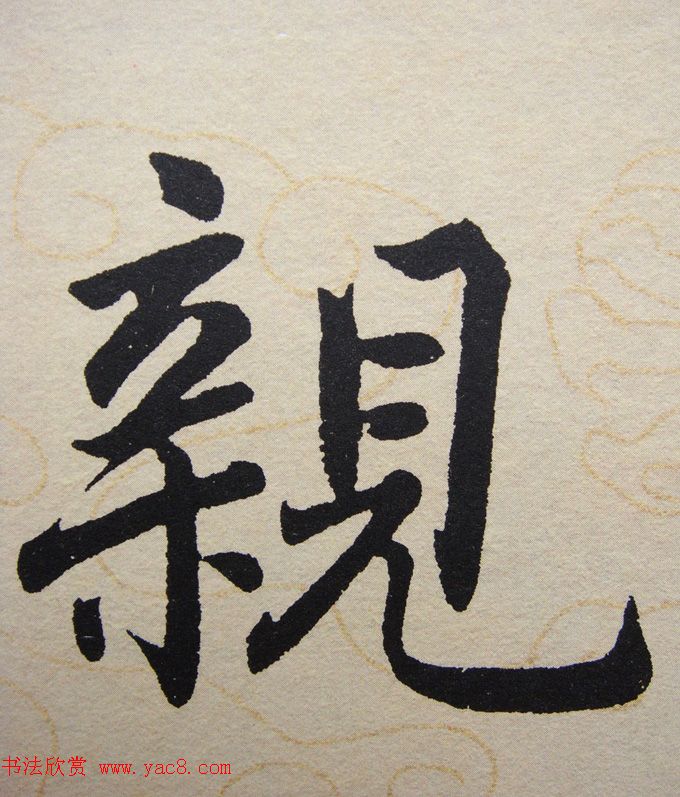 親
书法欣赏 www.yac8.com